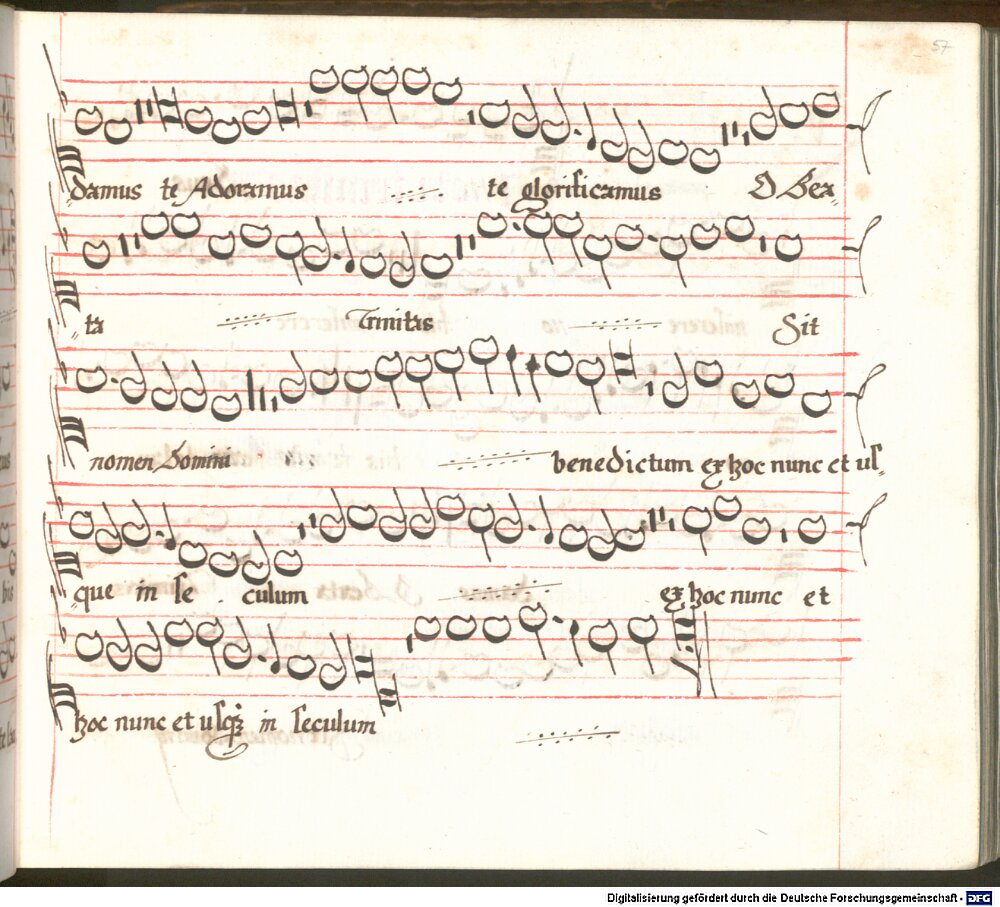 57
damus te Adoramus te glorificamus O Bea-
ta Trinitas Sit
nomen Domini benedictum ex hoc nunc et uſ-
que in ſe culum ex hoc nunc et
hoc nunc et uſqꝫ in ſeculum
Digitalisierung gefördert durch die Deutsche Forschungsgemeinschaft - DFG